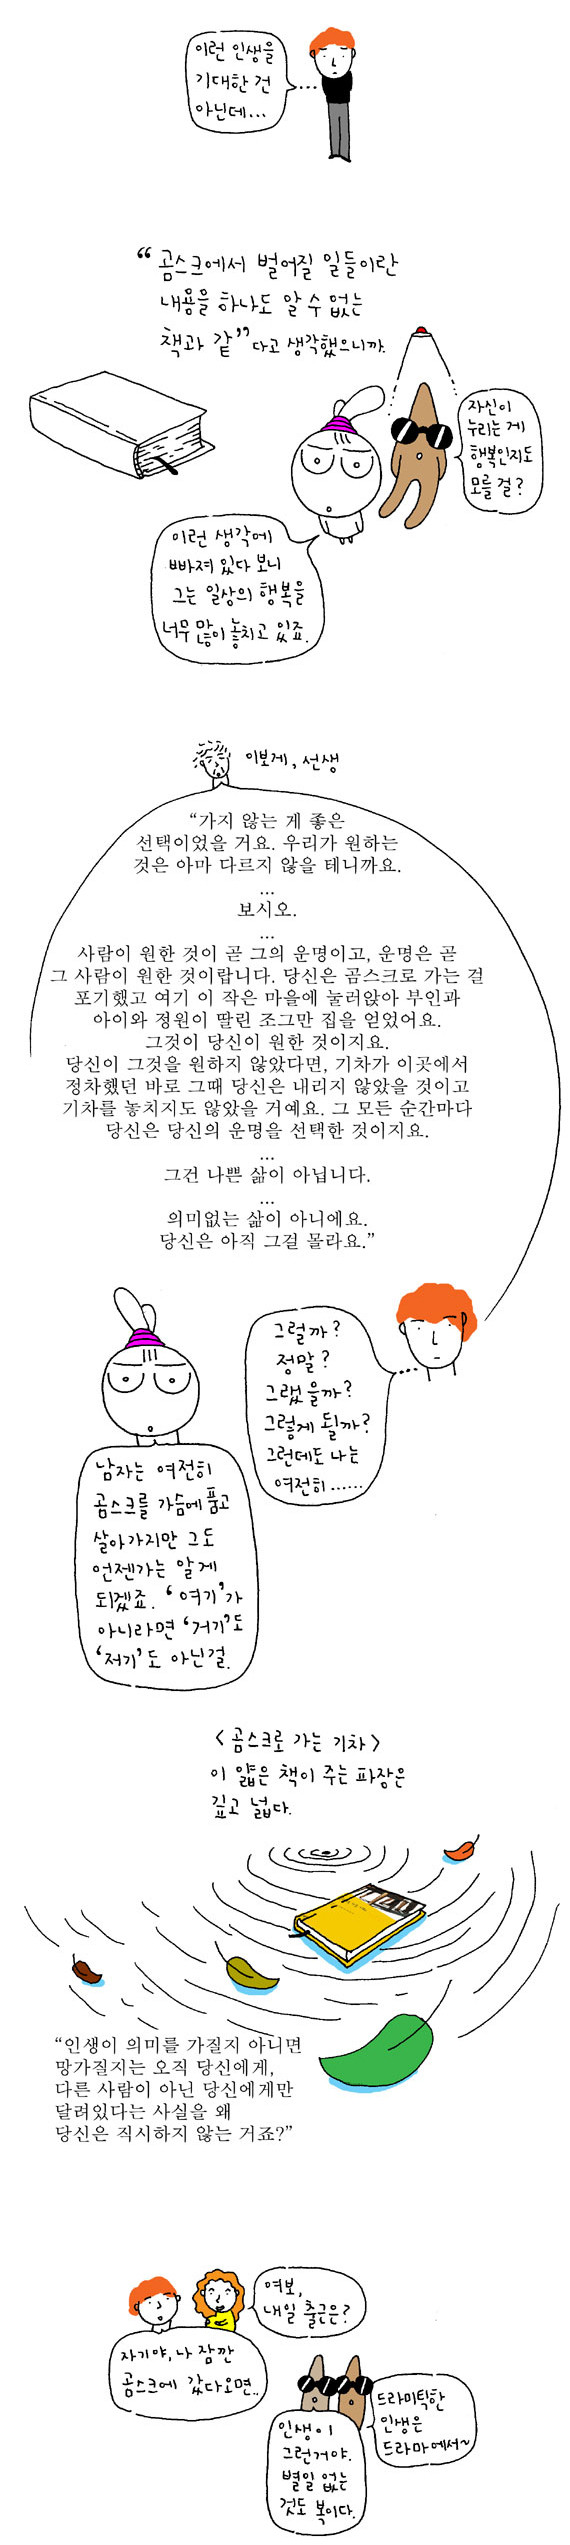 이런 인생을
기대한 건
아닌데...
“곰스크에서 벌어질 일들이란
내용을 하나도 알 수 없는
책과 같”다고 생각했으니까.
자신이
누리는 게
행복인지도
모를 걸?
이런 생각에
빠져 있다 보니
그는 일상의 행복을
너무 많이 놓치고 있죠.
이보게, 선생
“가지 않는 게 좋은
선택이었을 거요. 우리가 원하는
것은 아마 다르지 않을 테니까요.
...
보시오.
...
사람이 원한 것이 곧 그의 운명이고, 운명은 곧
그 사람이 원한 것이랍니다. 당신은 곰스크로 가는 걸
포기했고 여기 이 작은 마을에 눌러앉아 부인과
아이와 정원이 딸린 조그만 집을 얻었어요.
그것이 당신이 원한 것이지요.
당신이 그것을 원하지 않았다면, 기차가 이곳에서
정차했던 바로 그때 당신은 내리지 않았을 것이고
기차를 놓치지도 않았을 거예요. 그 모든 순간마다
당신은 당신의 운명을 선택한 것이지요.
...
그건 나쁜 삶이 아닙니다.
...
의미없는 삶이 아니에요.
당신은 아직 그걸 몰라요.”
그럴까?
정말?
그랬을까?
그렇게 될까?
그런데도 나는
여전히......
남자는 여전히
곰스크를 가슴에 품고
살아가지만 그도
언젠가는 알게
되겠죠. ‘여기’가
아니라면 ‘거기’도
‘저기’도 아닌걸.
<곰스크로 가는 기차>
이 얇은 책이 주는 파장은
깊고 넓다.
“인생이 의미를 가질지 아니면
망가질지는 오직 당신에게,
다른 사람이 아닌 당신에게만
달려있다는 사실을 왜
당신은 직시하지 않는 거죠?”
여보,
내일 출근은?
자기야, 나 잠깐
곰스크에 갔다오면..
드라마틱한
인생은
드라마에서~
인생이
그런거야.
별일 없는
것도 복이다.